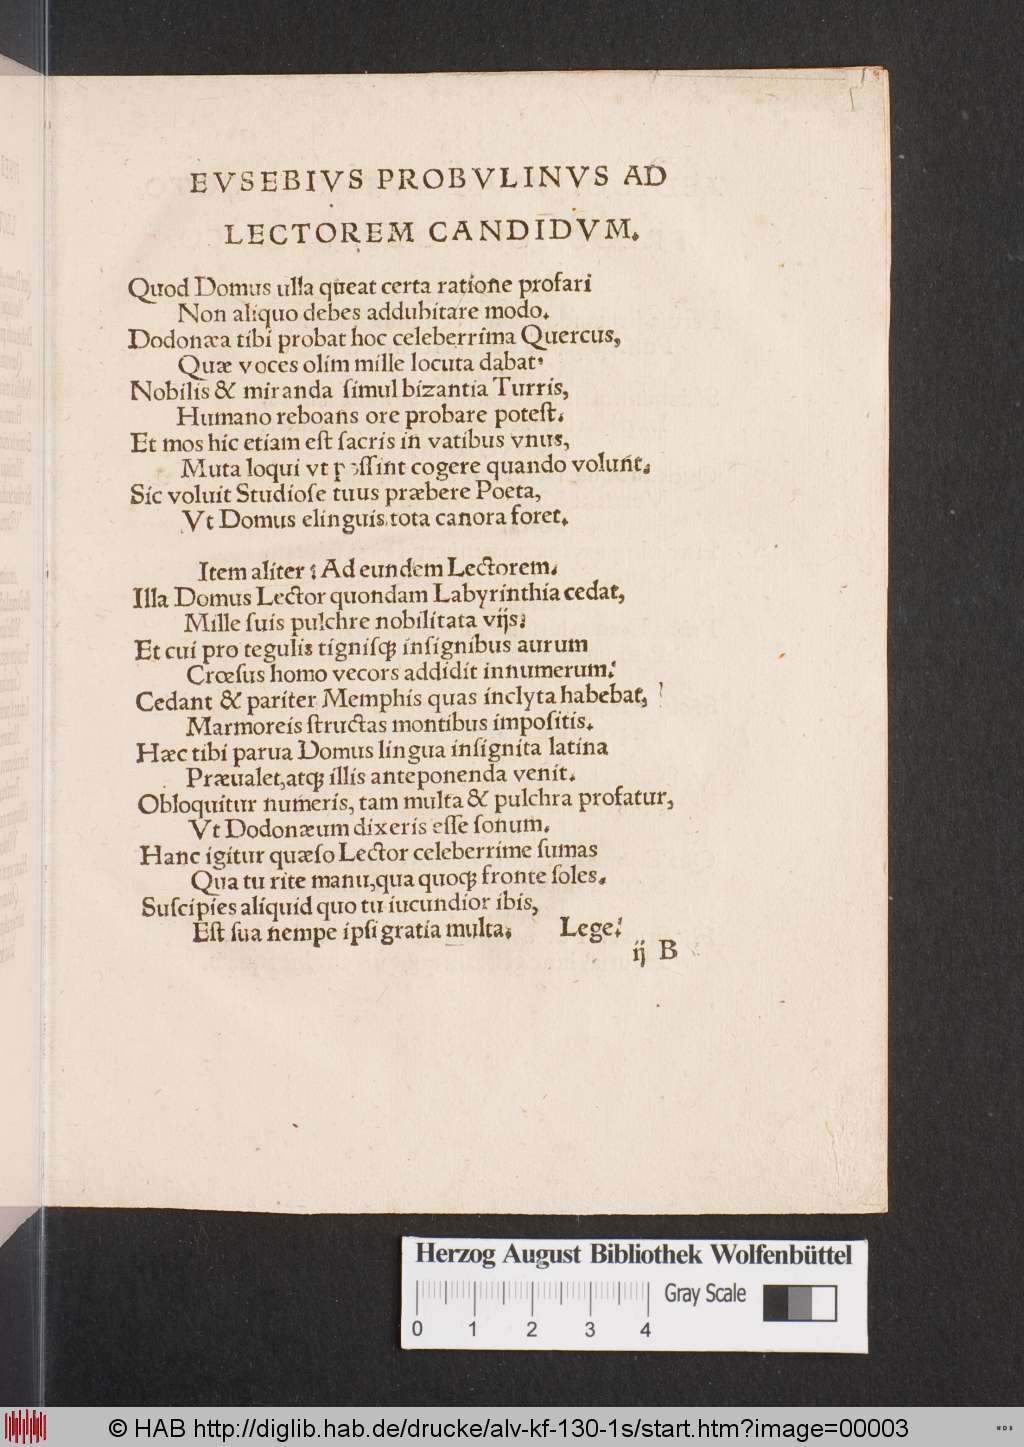 EVSEBIVS PROBVLINVS AD
LECTOREM CANDIDVM.
Quod Domus ulla queat certa ratione profari
Non aliquo debes addubitare modo.
Dodonæa tibi probat hoc celeberrima Quercus,
Quæ voces olim mille locuta dabat.
Nobilis & miranda ſimul bizantia Turris,
Humano reboans ore probare poteſt.
Et mos hic etiam eſt ſacris in vatibus vnus,
Muta loqui vt poſſint cogere quando volunt.
Sic voluit Studioſe tuus præbere Poeta,
Vt Domus elinguis tota canora foret.
Item aliter : Ad eundem Lectorem.
Illa Domus Lector quondam Labyrinthia cedat,
Mille ſuis pulchre nobilitata vijs:
Et cui pro tegulis tigniſqꝫ inſignibus aurum
Crœſus homo vecors addidit innumerum:
Cedant & pariter Memphis quas inclyta habebat,
Marmoreis ſtructas montibus impoſitis.
Hæc tibi parua Domus lingua inſignita latina
Præualet, atqꝫ illis anteponenda venit.
Obloquitur numeris, tam multa & pulchra profatur,
Vt Dodonæum dixeris eſſe ſonum.
Hanc igitur quæſo Lector celeberrime ſumas
Qua tu rite manu, qua quoqꝫ fronte ſoles.
Suſcipies aliquid quo tu iucundior ibis,
Eſt ſua nempe ipſi gratia multa: Lege:
ij B
Herzog August Bibliothek Wolfenbüttel
Gray Scale
0 1 2 3 4
© HAB http://diglib.hab.de/drucke/alv-kf-130-1s/start.htm?image=00003